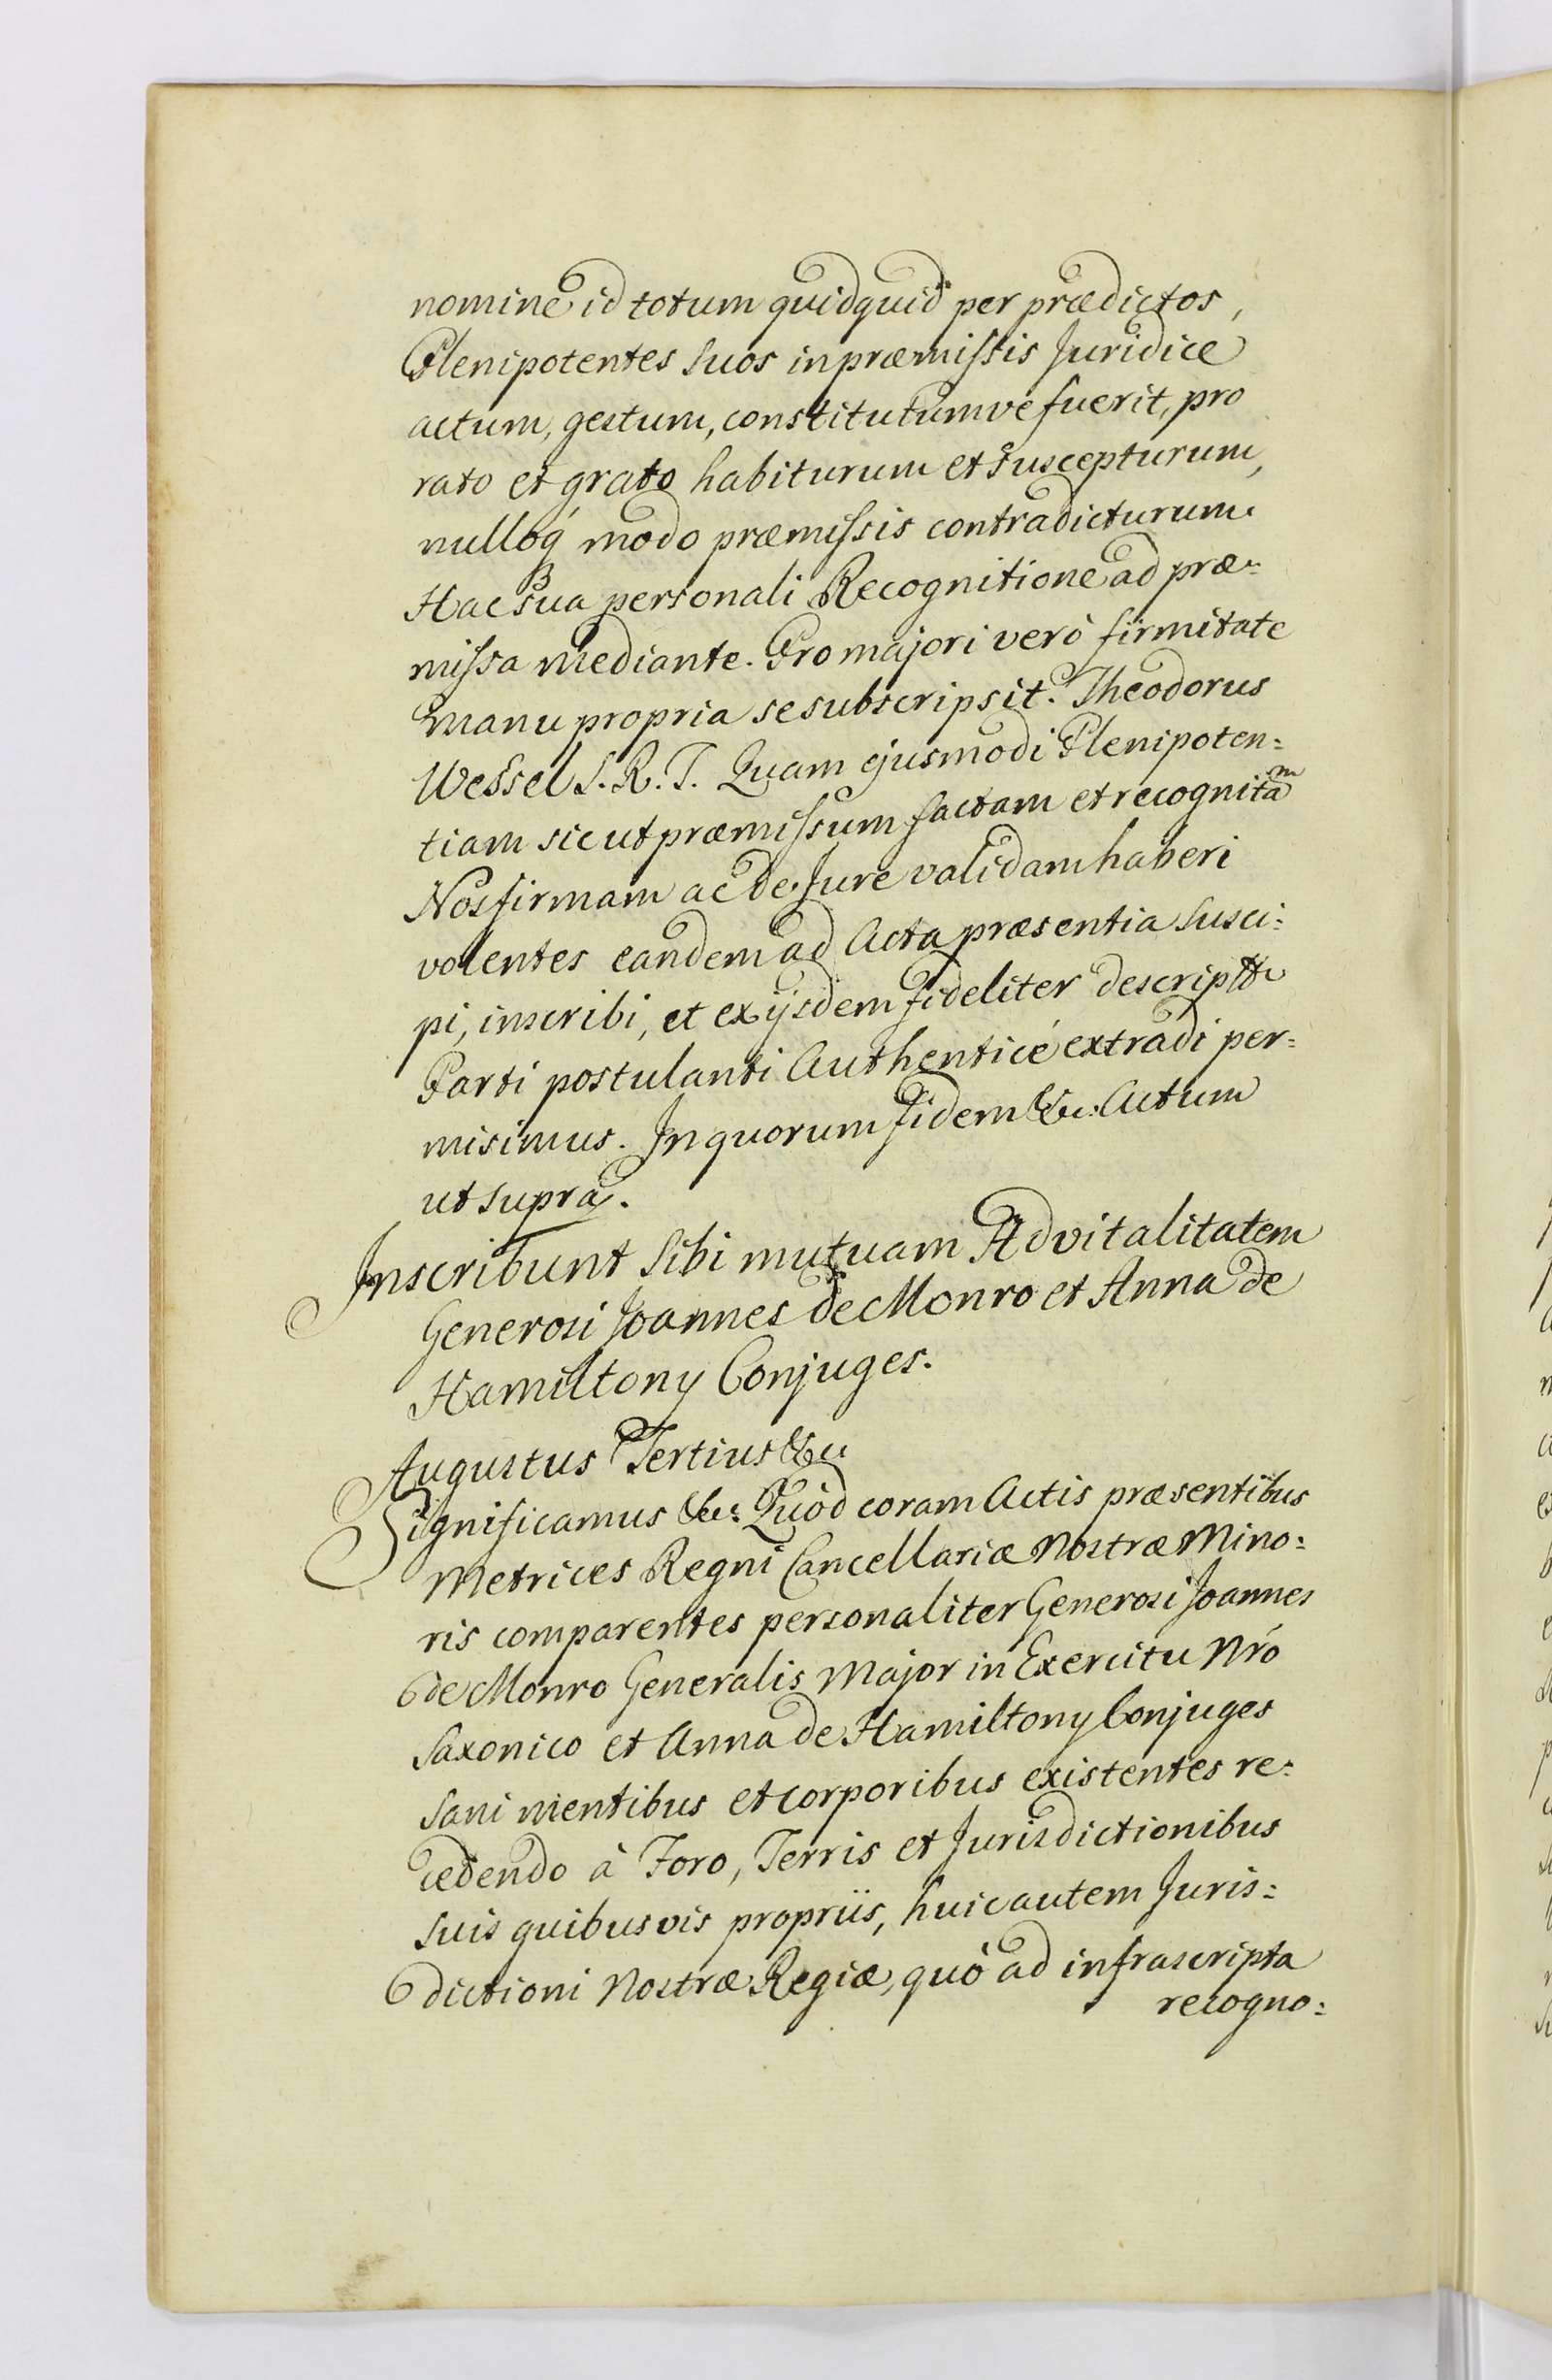 nomine id totum quidquid per prædictos,
Plenipotentes suos in præmissis Juridice
actum, gestum, constitutumve fuerit, pro
rato et grato habiturum et suscepturum,
nulloq́ modo præmissis contradicturum.
Hac sua personali Recognitione ad præ=
missa mediante. Pro majori verò firmitate
manu propria se subscripsit. Theodorus
Wessel S. R. T. Quam ejusmodi Plenipoten=
tiam sic ut præmissum factam et recognitam
Nos firmam ac de Jure validam haberi
volentes eandem ad Acta præsentia susci=
pi, inscribi, et ex ijsdem fideliter descriptã
Parti postulanti Authenticé extradi per=
misimus. In quorum fidem &c: Actum
ut supra.
Inscribunt sibi mutuam Advitalitatem
Generosi Joannes de Monro et Anna de
Hamiltony Conjuges.
Augustus Tertius &c
Significamus &c: Quòd coram Actis præsentibus
Metrices Regni Cancellariæ Nostræ Mino=
ris comparentes personaliter Generosi Joannes
de Monro Generalis Major in Exercitu Nró
Saxonico et Anna de Hamiltony Conjuges
sani mentibus et corporibus existentes re=
cedendo à Foro, Terris et Jurisdictionibus
suis quibusvis propriis, huic autem Juris=
dictioni Nostræ Regiæ, quò ad infrascripta
recogno=